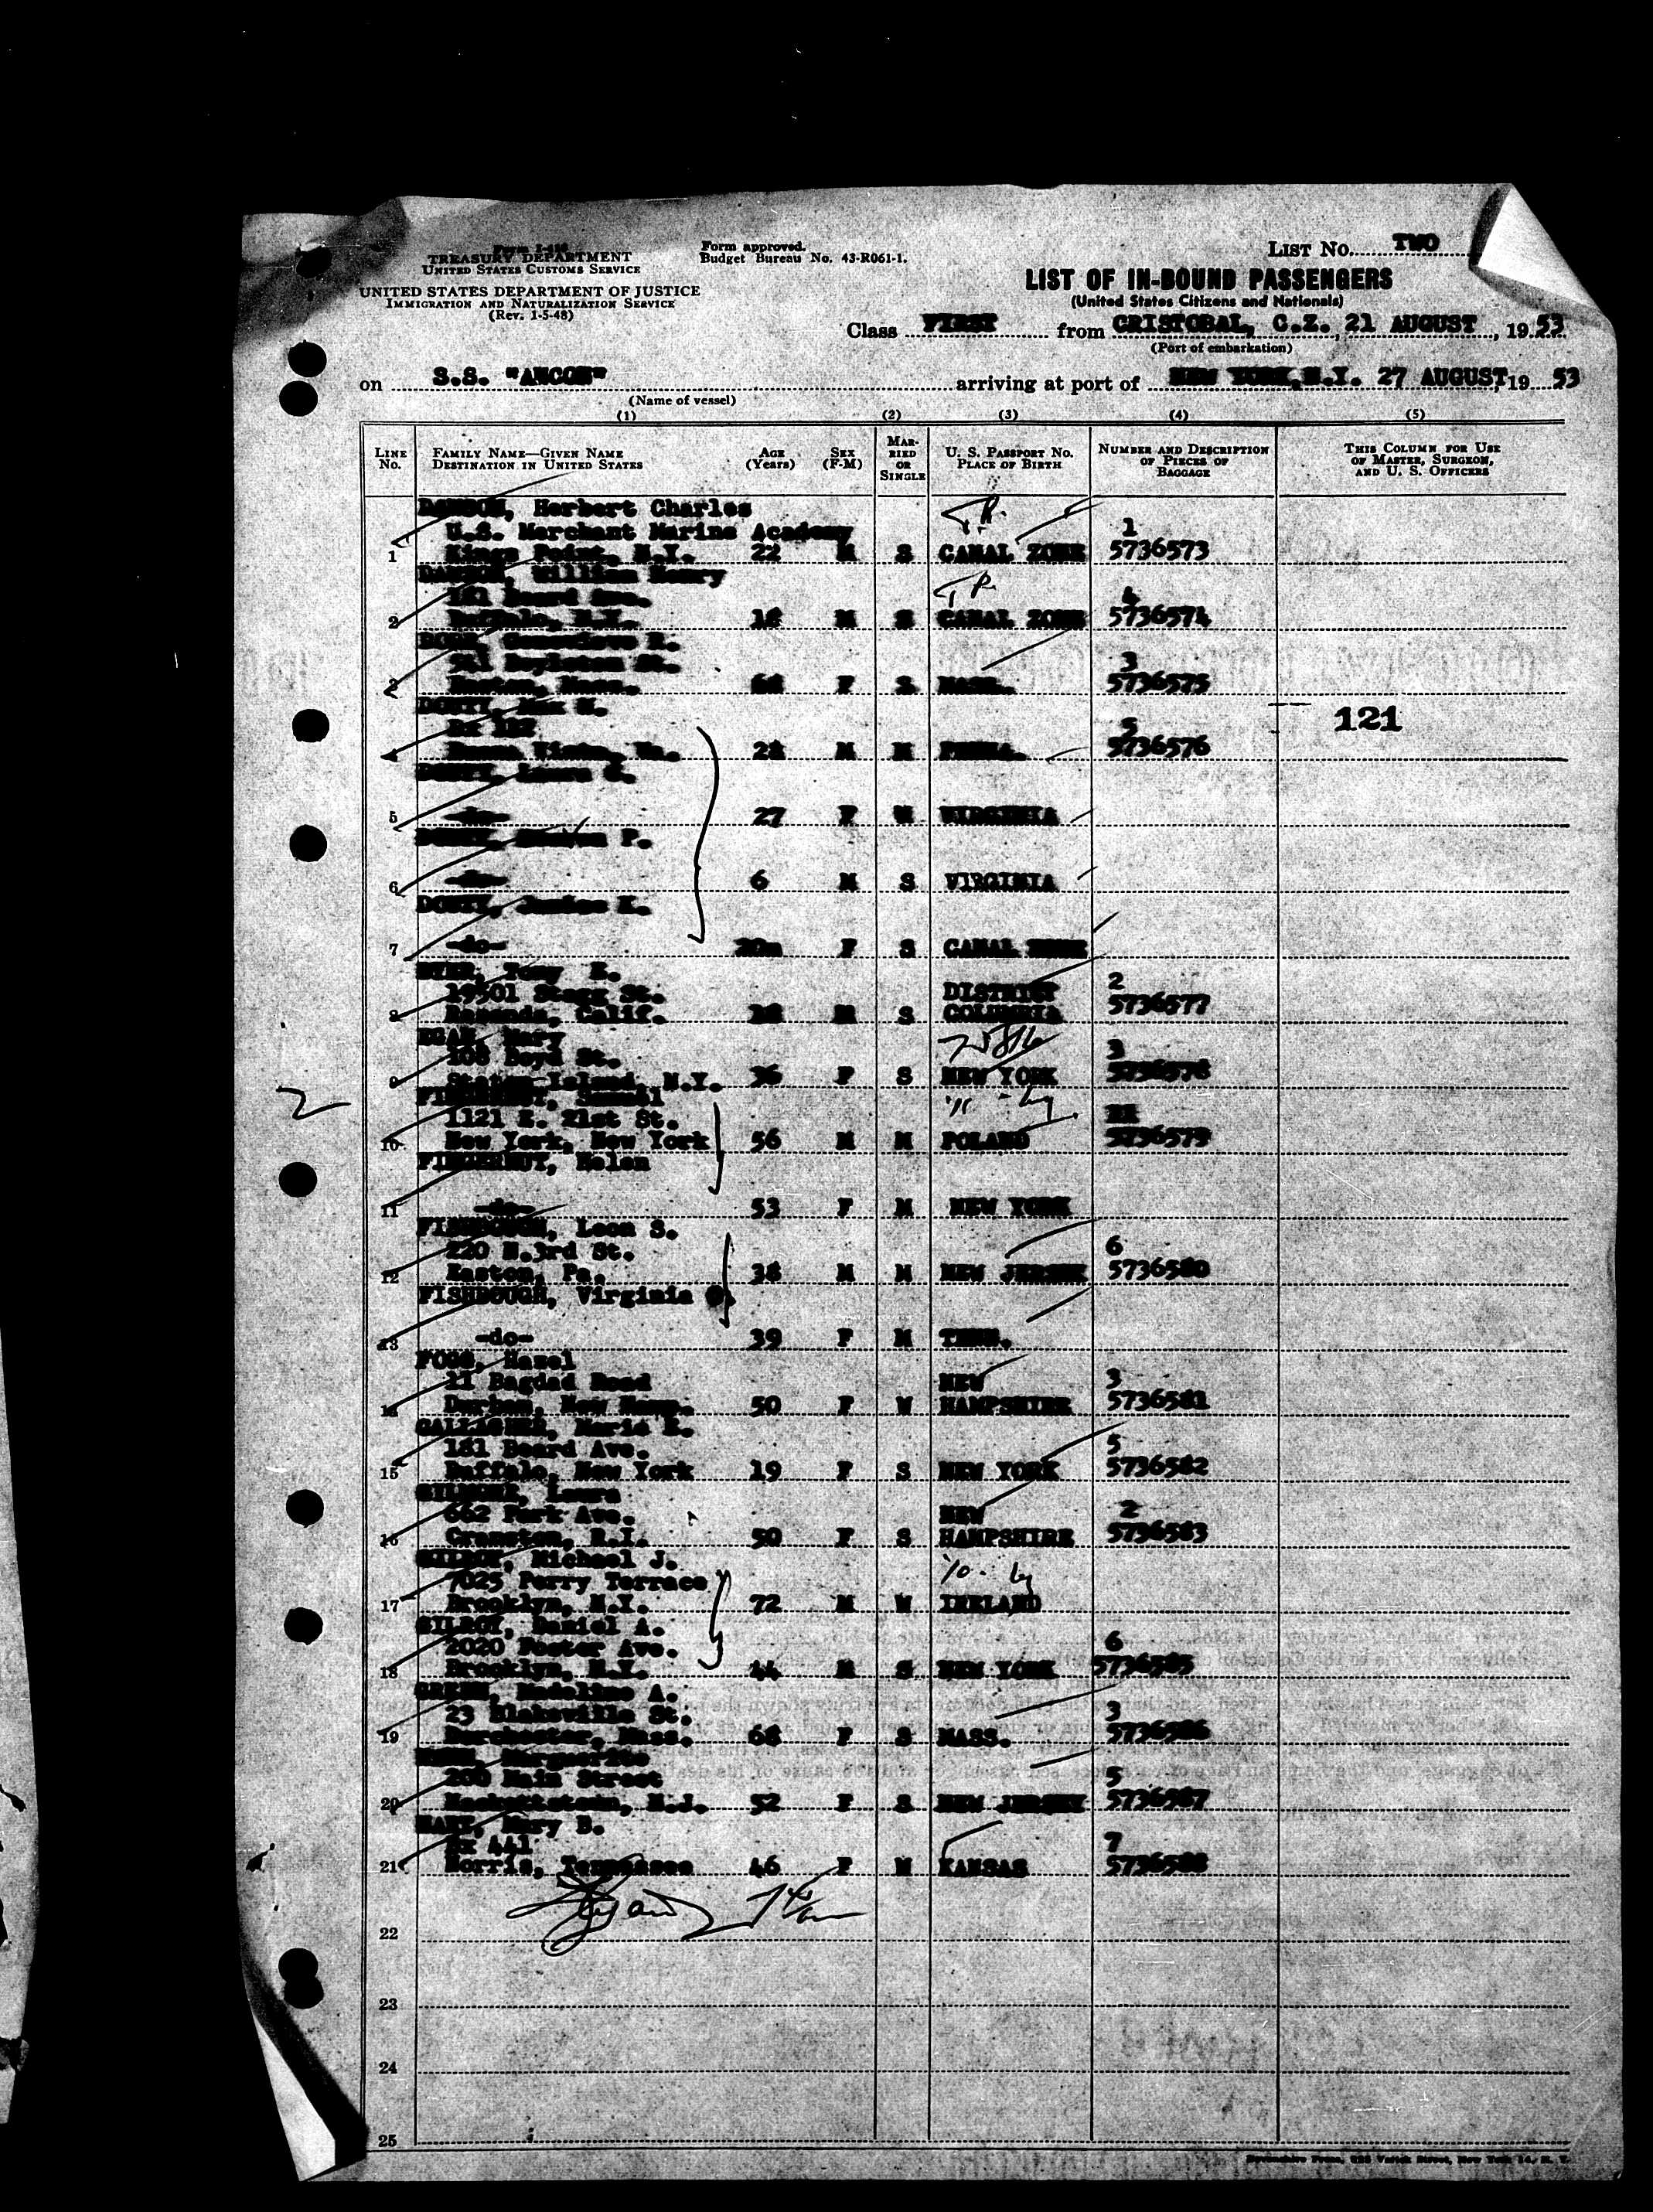 TREASURY DEPARTMENT
UNITED STATES CUSTOMS SERVICE
UNITED STATES DEPARTMENT OF JUSTICE
IMMIGRATION AND NATURALIZATION SERVICE
(Rev. 1-5-48)
Form approved.
Budget Bureau No. 43-R061-1.
LIST No. TWO
LIST OF IN-BOUND PASSENGERS
(United States Citizens and Nationals)
Class FIRST from CRISTOBAL, C.Z. 21 AUGUST, 1953
(Port of embarkation)
on S.S. "ANCON" arriving at port of NEW YORK, N.Y. 27 AUGUST, 1953
(Name of vessel)
(1) (2) (3) (4) (5)
LINE No. FAMILY NAME—GIVEN NAME DESTINATION IN UNITED STATES AGE (Years) SEX (F-M) MARRIED OR SINGLE U. S. PASSPORT No. PLACE OF BIRTH NUMBER AND DESCRIPTION OF PIECES OF BAGGAGE THIS COLUMN FOR USE OF MASTER, SURGEON, AND U. S. OFFICERS
Herbert Charles
U.S. Merchant Marine Academy 1
1 Kings Point, N.Y. 22 M S CANAL ZONE 5736573
William Henry
181 Beard Ave. 4
2 Buffalo, N.Y. 18 M S CANAL ZONE 5736574
St. 3
3 Boston, Mass. 68 F S MASS. 5736575
DOSTY, Max H.
5
4 Buena Vista, Va. M M PENNA. 5736576
121
DOSTY, Laura
5 -do- 27 F M VIRGINIA
DOSTY, P.
6 -do- 6 M S VIRGINIA
DOSTY, K.
7 -do- 20m F S CANAL ZONE
DYER, Tony E.
19501 Stagg St. DISTRICT 2
8 Reseda, Calif. M S COLUMBIA 5736577
EGAN, Mary
108 Boyd St. 3
9 Staten Island, N.Y. 36 F S NEW YORK 5736578
FINGERHUT, Samuel
1121 E. 21st St.
10 New York, New York 56 M M POLAND 5736579
FINGERHUT, Helen
11 -do- 53 F M NEW YORK
FISHBOUGH, Leon S.
220 N.3rd St. 6
12 Easton, Pa. 38 M M NEW JERSEY 5736580
FISHBOUGH, Virginia
13 -do- 39 F M TENN.
FOGG, Hazel
11 Bagdad Road NEW 3
14 Durham, New Hamp. 50 F W HAMPSHIRE 5736581
GALLAGHER, Marie
181 Beard Ave. 5
15 Buffalo, New York 19 F S NEW YORK 5736582
GILMORE, Laura
662 Park Ave. NEW 2
16 Cranston, R.I. 50 F S HAMPSHIRE 5736583
GILROY, Michael J.
7025 Perry Terrace
17 Brooklyn, N.Y. 72 M W IRELAND
GILROY, Daniel A.
2020 Foster Ave. 6
18 Brooklyn, N.Y. 44 M S NEW YORK 5736585
GREEN, Madeline A.
23 Blakeville St. 3
19 Dorchester, Mass. 68 F S MASS. 5736586
Marguerite
200 Main Street 5
20 Hackettstown, N.J. 52 F S NEW JERSEY 5736587
HART, Mary B.
Bx 441 7
21 Norris, Tennessee 46 F M KANSAS 5736588
22
23
24
25